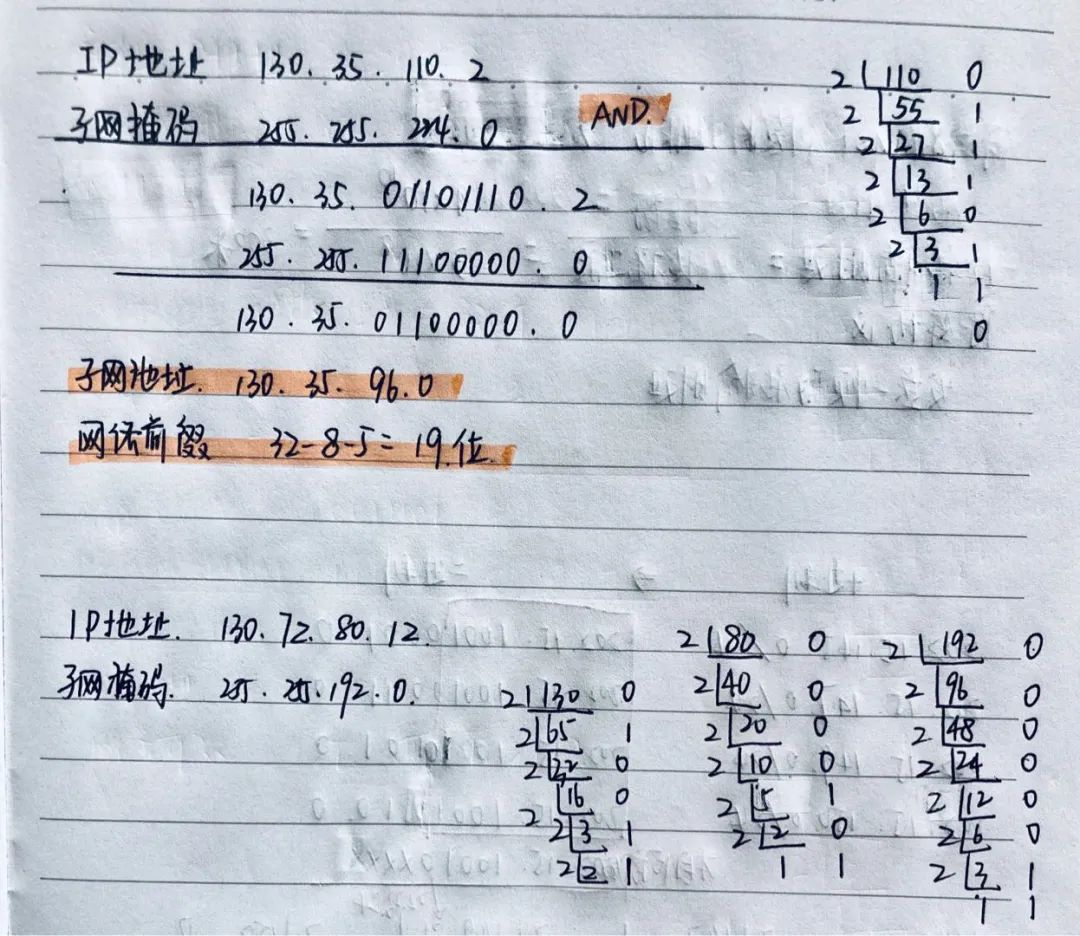 IP地址 130. 35. 110. 2
子网掩码 255. 255. 224. 0 AND.
130. 35. 01101110. 2
255. 255. 11100000. 0
130. 35. 01100000. 0
子网地址. 130. 35. 96.0
网络前缀 32-8-5=19.位.
2 110 0
2 55 1
2 27 1
2 13 1
2 6 0
2 3 1
1 1
0
IP地址. 130. 72. 80. 12.
子网掩码. 255. 255. 192. 0.
2 130 0
2 65 1
2 0
16 0
2 2 3 1
2 2 1
2 80 0
2 40 0
2 20 0
2 10 0
2 5 1
2 2 0
1 1
2 192 0
2 96 0
2 48 0
2 24 0
2 12 0
2 6 0
2 3 1
1 1